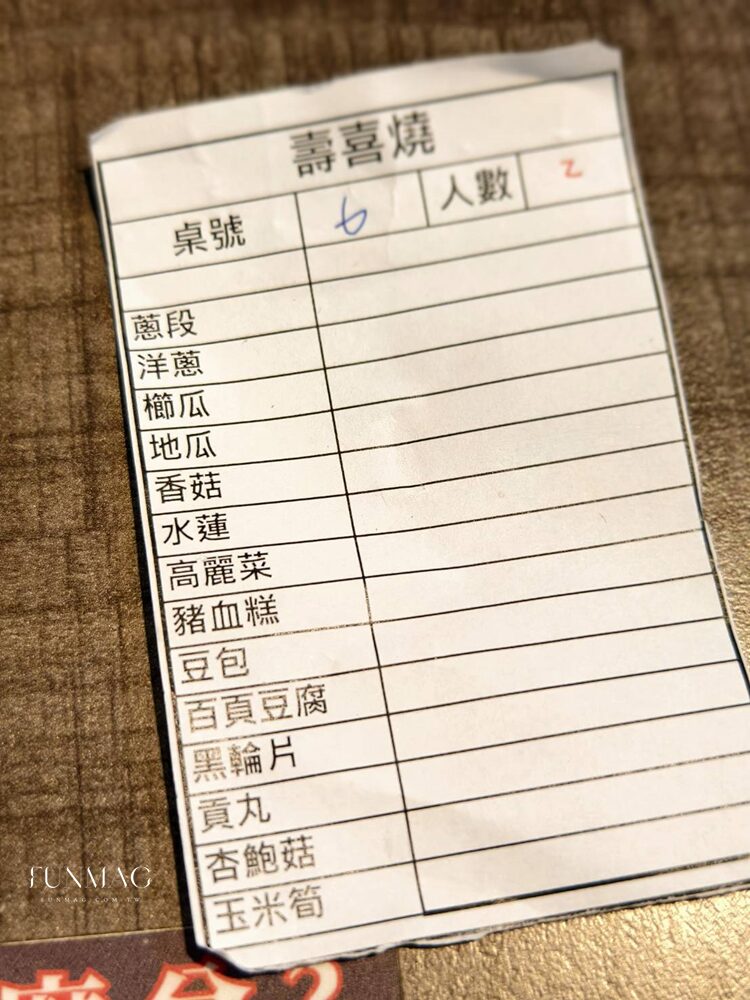 壽喜燒
桌號 6 人數 2
蔥段
洋蔥
櫛瓜
地瓜
香菇
水蓮
高麗菜
豬血糕
豆包
百頁豆腐
黑輪片
貢丸
杏鮑菇
玉米筍
FUNMAG
FUNMAG.COM.TW